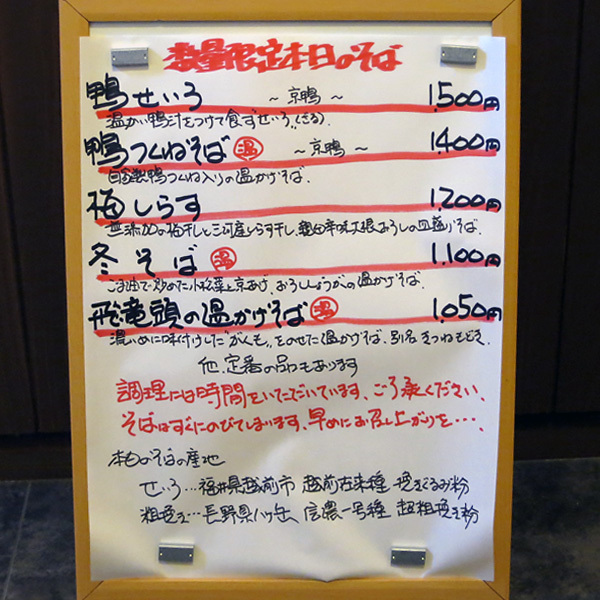 数量限定本日のそば
鴨せいろ ～京鴨～ 1,500円
温かい鴨汁をつけて食すせいろ(ざる).
鴨つくねそば 温 ～京鴨～ 1,400円
自家製鴨つくね入りの温かけそば.
梅しらす 1,200円
無添加の梅干しと三河産しらす干し、辛味大根おろしの皿盛りそば.
冬そば 温 1,100円
ごま油で炒めた小松菜と京あげ、おろししょうがの温かけそば.
飛竜頭の温かけそば 温 1,050円
濃いめに味付けした"がんも"をのせた温かけそば.別名きつねもどき.
他、定番の品もあります
調理には時間をいただいています、ご了承ください、
そばはすぐにのびてしまいます、早めにお召し上がりを・・・、
本日のそばの産地
せいろ…福井県越前市 越前在来種 挽きぐるみ粉
粗挽き…長野県八ヶ岳 信濃一号種 超粗挽き粉